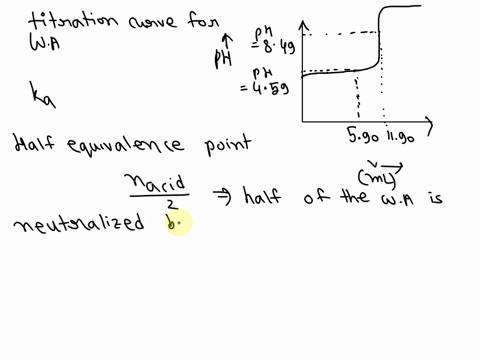 titration curve for
W.A
pH ↑
pH
= 8.49
pH
= 4.59
ka
5.90 11.90
V →
(mL)
Half equivalence point
nacid/2 ⇒ half of the W.A is
neutralized b